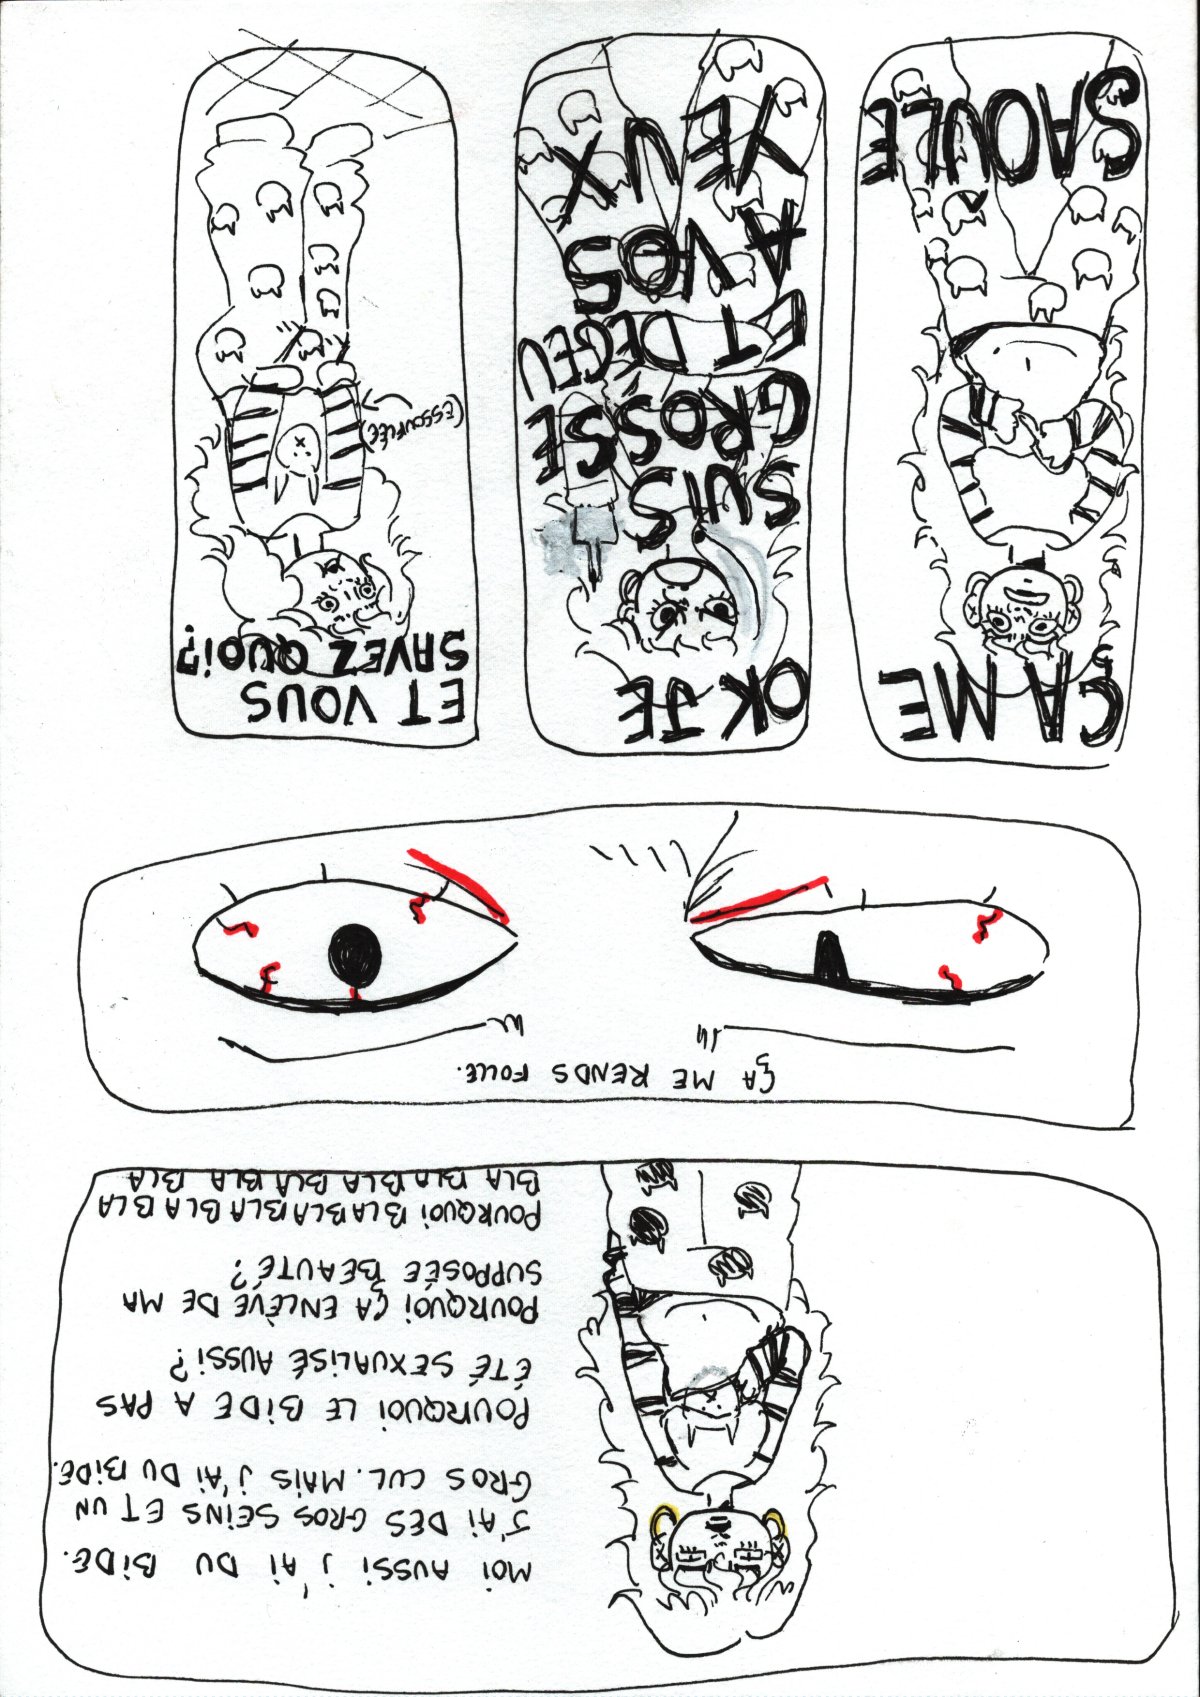 MOI AUSSI J'AI DU BIDE.
J'AI DES GROS SEINS ET UN
GROS CUL. MAIS J'AI DU BIDE.
POURQUOI LE BIDE A PAS
ÉTÉ SEXUALISÉ AUSSI?
POURQUOI ÇA ENLÈVE DE MA
SUPPOSÉE BEAUTÉ?
POURQUOI BLABLABLABLABLABLA
BLA BLA BLA BLA BLA BLA
ÇA ME RENDS FOLLE.
ÇA ME
SAOULE
OK JE
SUIS
GROSSE
ET DEGEU
A VOS
YEUX
ET VOUS
SAVEZ QUOI?
(ESSOUFLÉE)